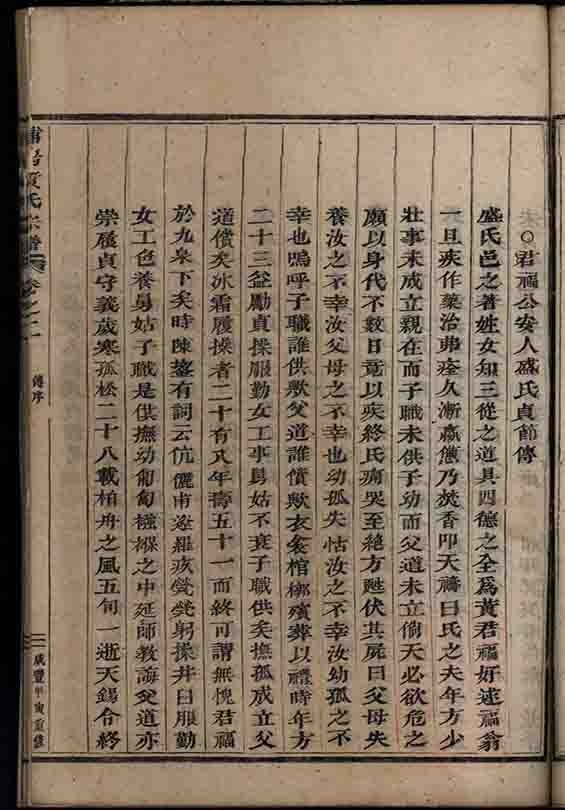 ○君福公安人盛氏貞節傳
盛氏邑之著姓女知三從之道具四德之全爲黃君福好逑福翁
一旦疾作藥治弗痊久漸羸憊乃焚香叩天禱曰氏之夫年方少
壯事未成立親在而子職未供子幼而父道未立倘天必欲危之
願以身代不數日竟以疾終氏痛哭至絕方甦伏其屍曰父母失
養汝之不幸汝父母之不幸也幼孤失怙汝之不幸汝幼孤之不
幸也嗚呼子職誰供歟父道誰償歟衣衾棺槨殯葬以禮時年方
二十三益勵貞操服勤女工事舅姑不衰子職供矣撫孤成立父
道償矣冰霜履操者二十有八年壽五十一而終可謂無愧君福
於九泉下矣時陳簽有詞云伉儷甫游羅疢煢煢躬操井臼服勤
女工色養舅姑子職是供撫幼匍匐襁褓之中延師教誨父道亦
崇履貞守義歲寒孤松二十八載柏舟之風五旬一逝天錫令終
氏宗譜
卷之二
傳序
咸豐甲寅重修